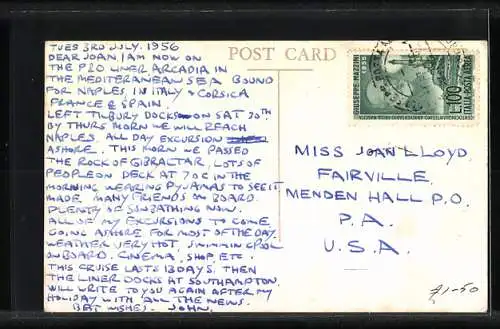 TUES 3RD JULY. 1956
POST CARD
DEAR JOAN, I AM NOW ON
THE P&O LINER ARCADIA IN
THE MEDITERRANEAN SEA BOUND
FOR NAPLES, IN ITALY & CORSICA
FRANCE & SPAIN.
LEFT TILBURY DOCKS ON SAT 30TH
BY THURS MORN WE WILL REACH
NAPLES ALL DAY EXCURSION
ASHORE. THIS MORN WE PASSED
THE ROCK OF GIBRALTAR, LOTS OF
PEOPLE ON DECK AT 7 O'C IN THE
MORNING WEARING PYJAMAS TO SEE IT
MADE MANY FRIENDS ON BOARD.
PLENTY OF SUNBATHING NOW.
ALL OF MY EXCURSIONS TO COME
GOING ASHORE FOR MOST OF THE DAY.
WEATHER VERY HOT, SWIMMING POOL
ON BOARD. CINEMA, SHOP, ETC.
THIS CRUISE LASTS 13 DAYS. THEN
THE LINER DOCKS AT SOUTHAMPTON,
WILL WRITE TO YOU AGAIN AFTER MY
HOLIDAY WITH ALL THE NEWS.
BEST WISHES. JOHN.
GIUSEPPE MAZZINI
L.100
ITALIA·POSTA AEREA
MISS JOAN LLOYD
FAIRVILLE.
MENDEN HALL P.O.
P.A.
U.S.A.
71-50